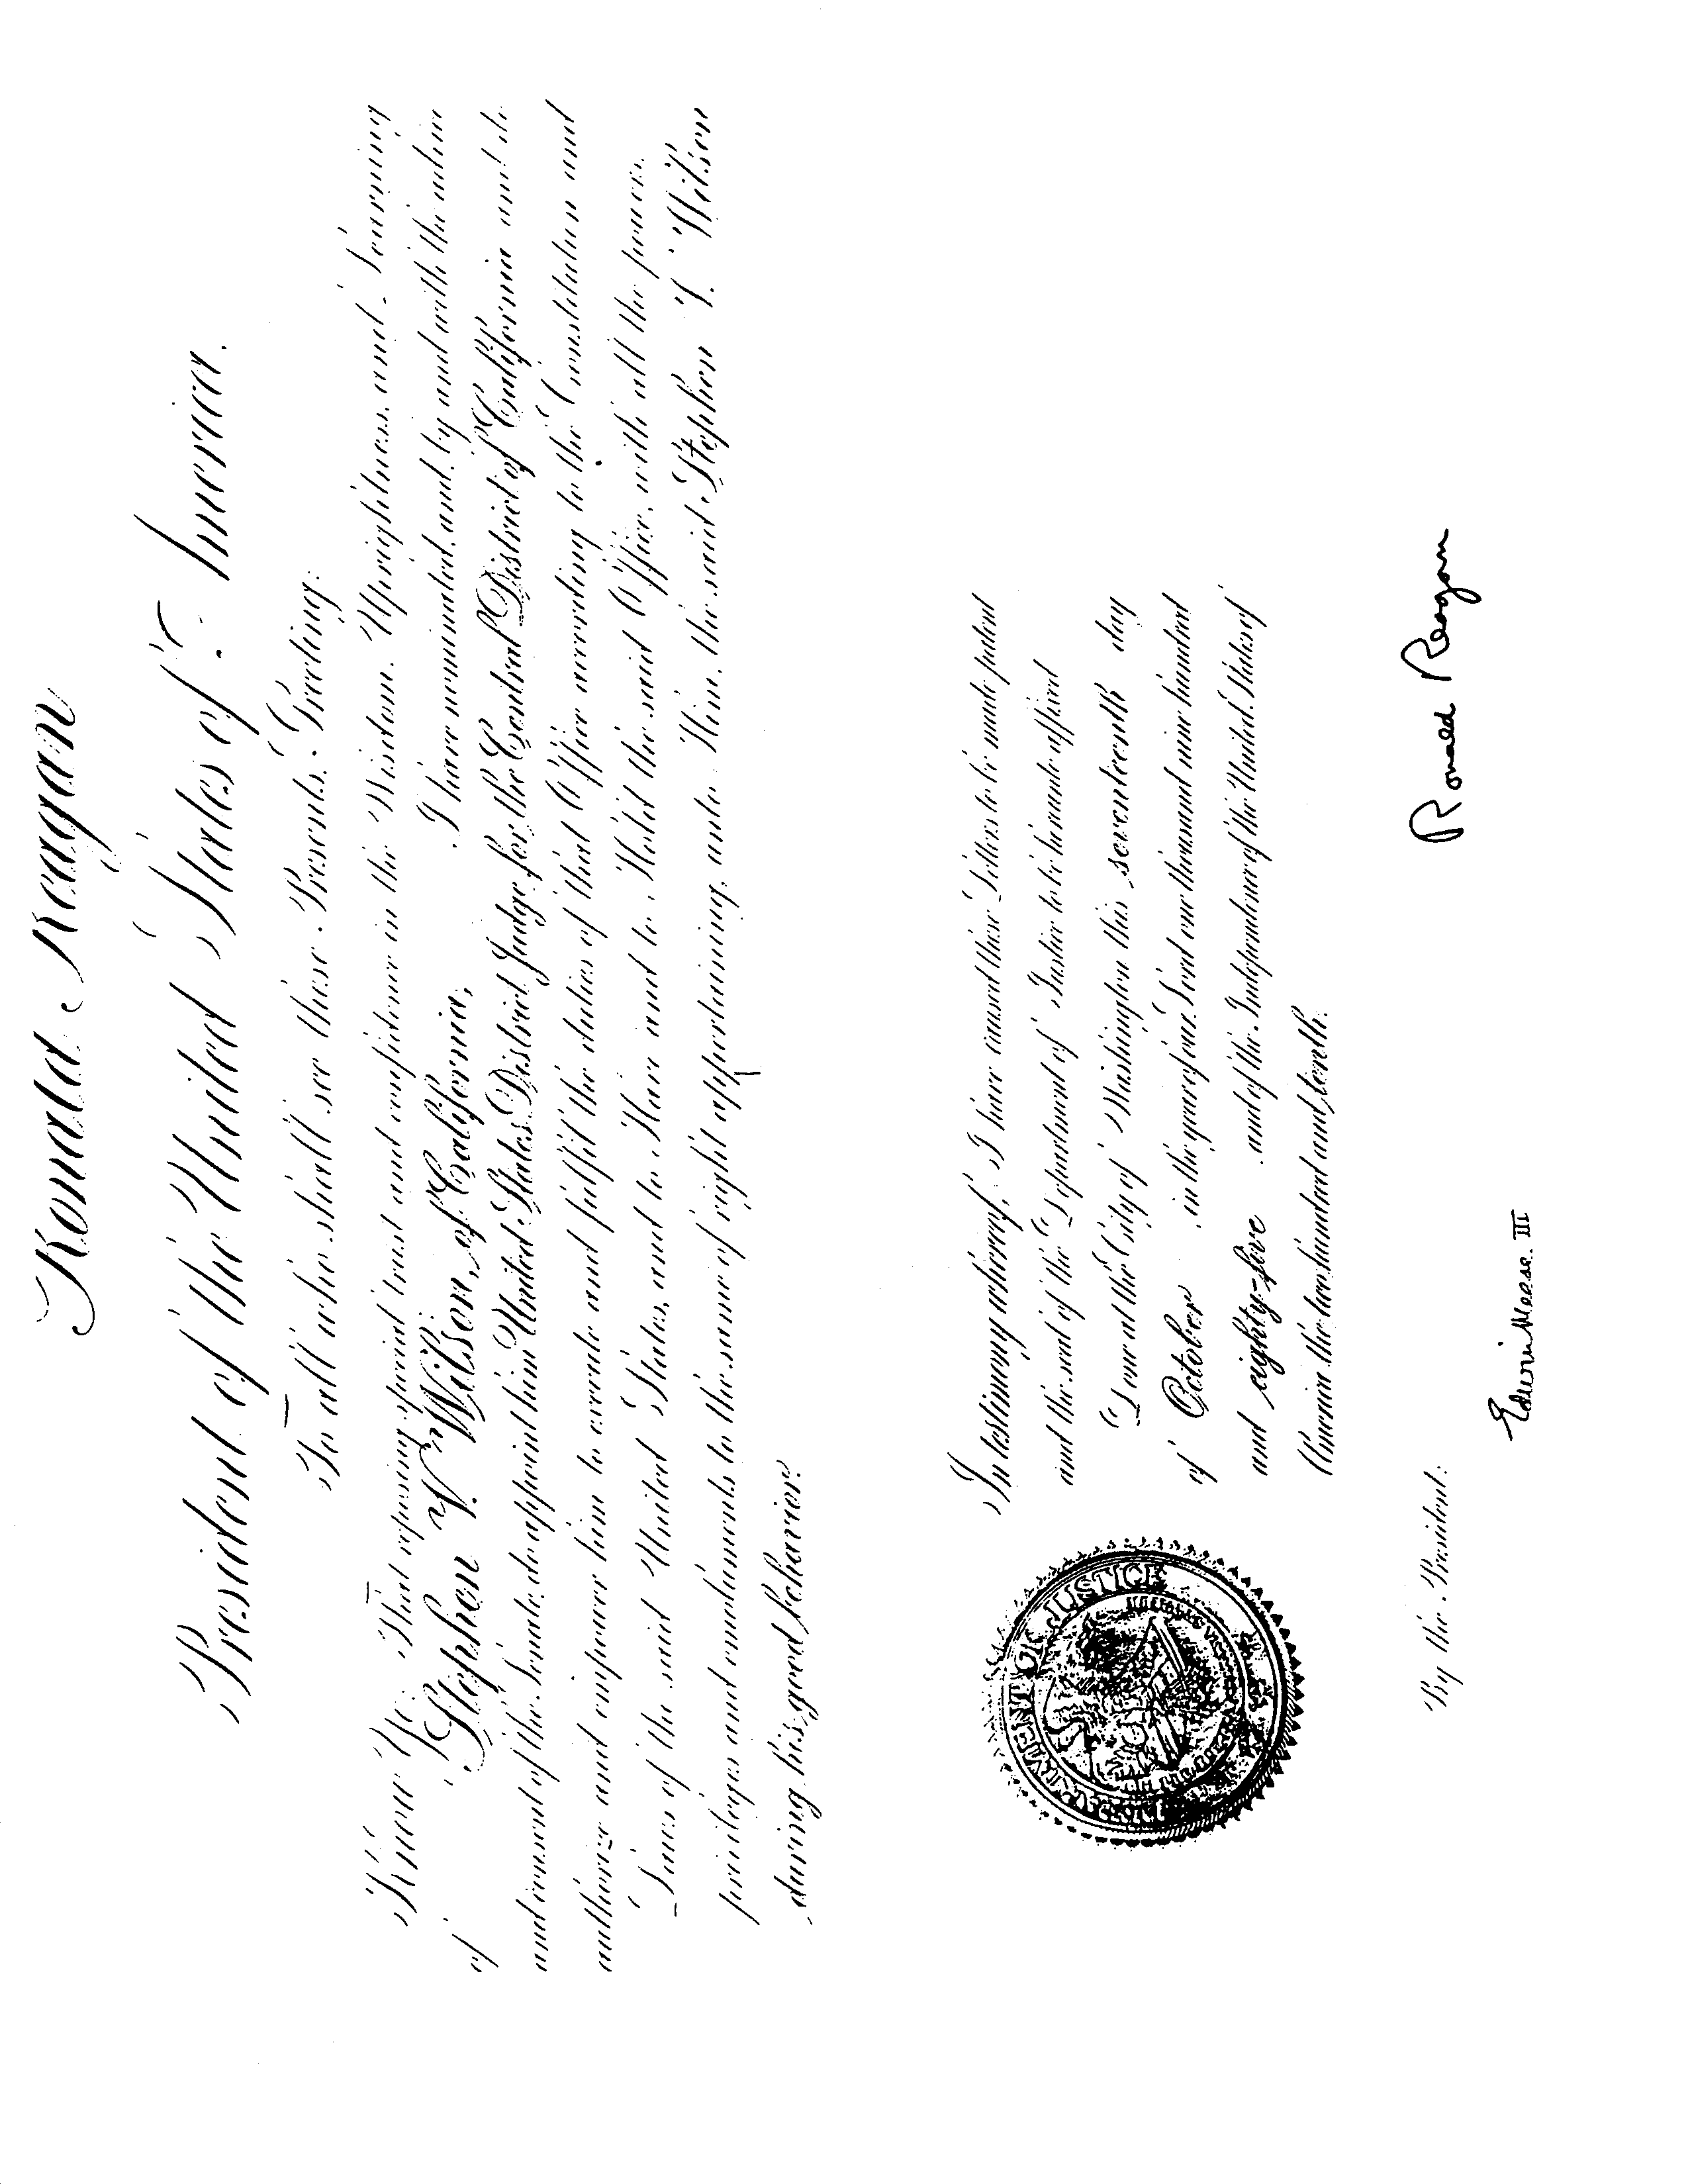 Ronald Reagan
President of the United States of America.
To all who shall see these Presents, Greeting:
Know Ye: That reposing special trust and confidence in the Wisdom, Uprightness, and Learning
of Stephen V. Wilson, of California, I have nominated, and, by and with the advice
and consent of the Senate, do appoint him United States District Judge for the Central District of California and do
authorize and empower him to execute and fulfil the duties of that Office according to the Constitution and
Laws of the said United States, and to Have and to Hold the said Office, with all the powers,
privileges and emoluments to the same of right appertaining, unto Him, the said Stephen V. Wilson
during his good behavior.
In testimony whereof, I have caused these Letters to be made patent
and the seal of the Department of Justice to be hereunto affixed
Done at the City of Washington this seventeenth day
of October in the year of our Lord one thousand nine hundred
and eighty-five and of the Independence of the United States of
America the two hundred and tenth.
DEPARTMENT OF JUSTICE
Ronald Reagan
By the President:
Edwin Meese III